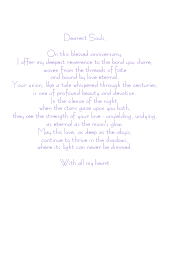 Dearest Souls,
On this blessed anniversary,
I offer my deepest reverence to the bond you share,
woven from the threads of fate
and bound by love eternal.
Your union, like a tale whispered through the centuries,
is one of profound beauty and devotion.
In the silence of the night,
when the stars gaze upon you both,
they see the strength of your love - unyielding, undying,
as eternal as the moon's glow.
May this love, as deep as the abyss,
continue to thrive in the shadows,
where its light can never be dimmed.
With all my heart